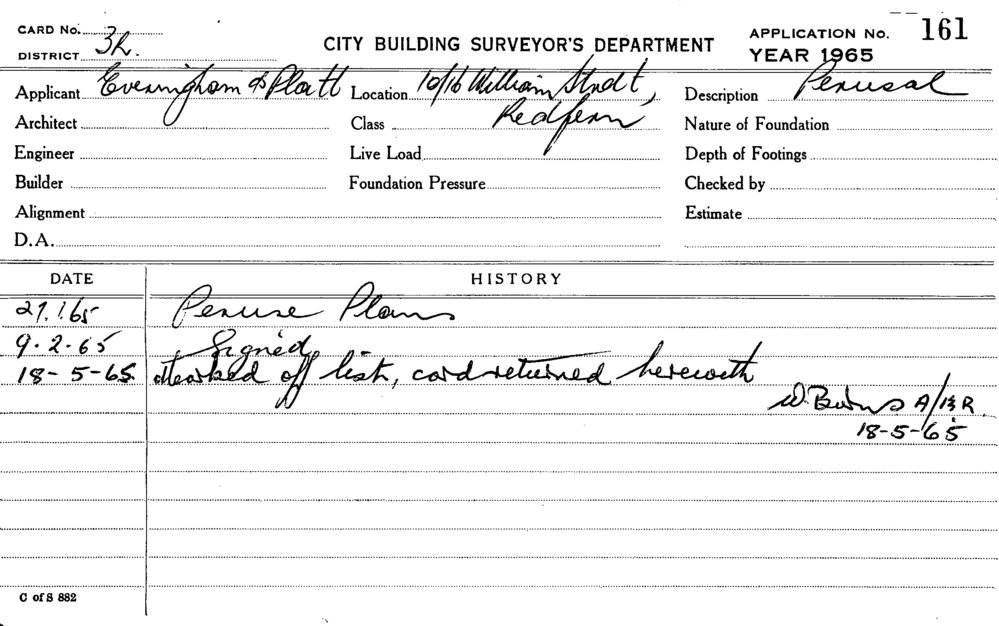 CARD No.
DISTRICT 3h.
CITY BUILDING SURVEYOR'S DEPARTMENT
APPLICATION No. 161
YEAR 1965
Applicant Everingham & Platt Location 10/16 William Street, Description Perusal
Architect Class Redfern Nature of Foundation
Engineer Live Load Depth of Footings
Builder Foundation Pressure Checked by
Alignment Estimate
D.A.
DATE HISTORY
27.1.65 Peruse Plans
9.2.65 Signed
18-5-65. Marked off list, card returned herewith
W. Burns A/BR.
18-5-65
C of S 882